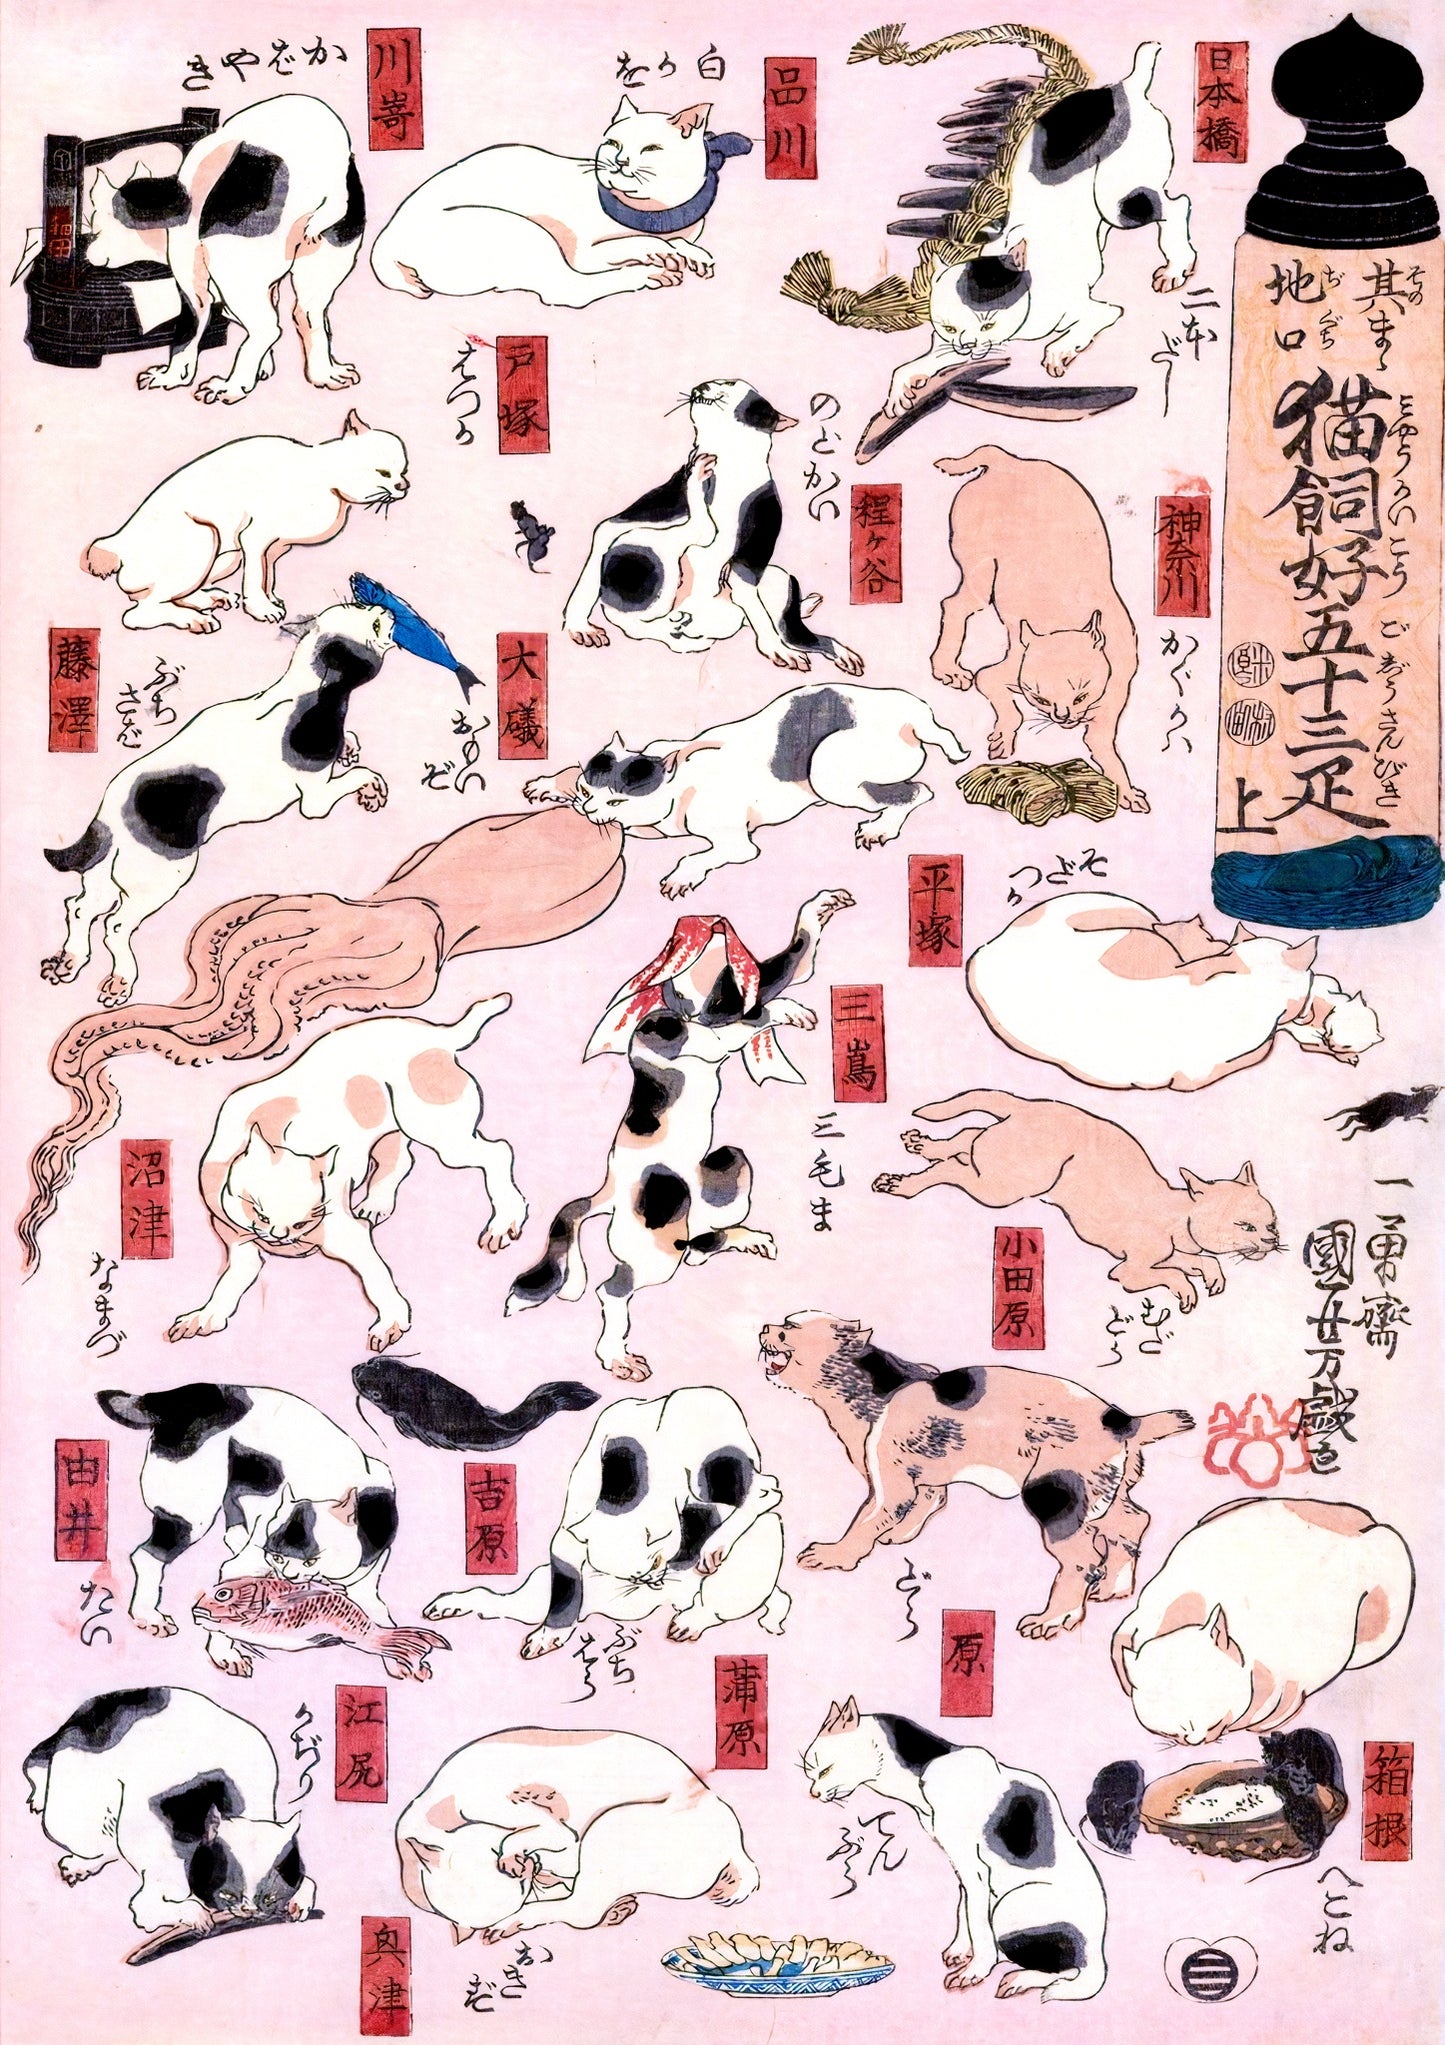 其まゝ
そのまゝ
地口
ぢぐち
猫飼好五十三疋
みやうかいこうごじうさんびき
上
日本橋
二本だし
品川
白かを
川嵜
かばやき
神奈川
かぐかハ
程ヶ谷
のどかい
戸塚
はつか
藤澤
ぶちさば
平塚
そだつか
大礒
おもいぞ
小田原
むだどら
箱根
へこね
三嶌
三毛ま
沼津
なまづ
原
どら
吉原
ぶちはら
蒲原
てんぷら
由井
たい
奥津
おきず
江尻
かぢり
一勇齋
國芳戯画